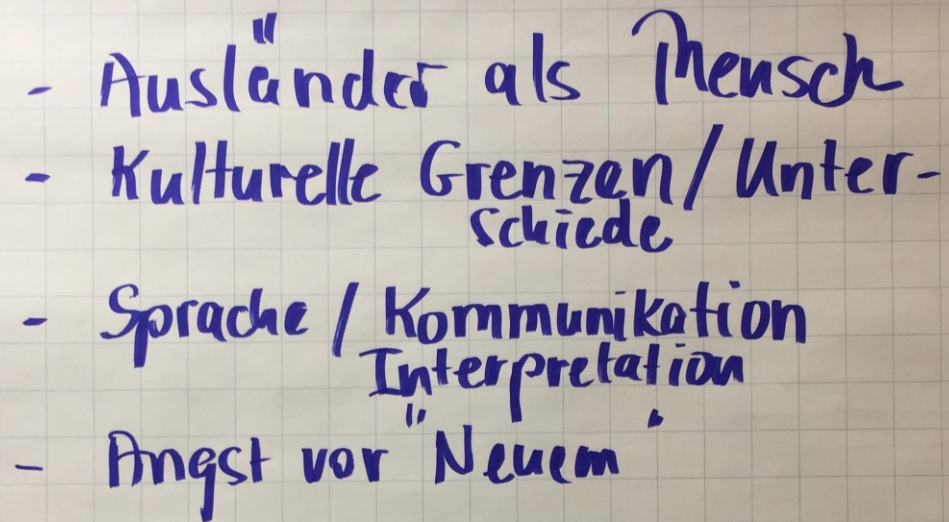 - Ausländer als Mensch
- Kulturelle Grenzen / Unter-
schiede
- Sprache / Kommunikation
Interpretation
- Angst vor "Neuem"